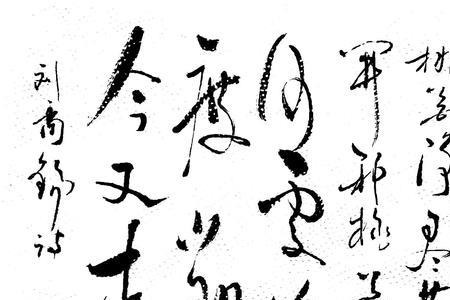 桃花浄尽菜
开种桃
何处
度
今又来
刘禹锡诗